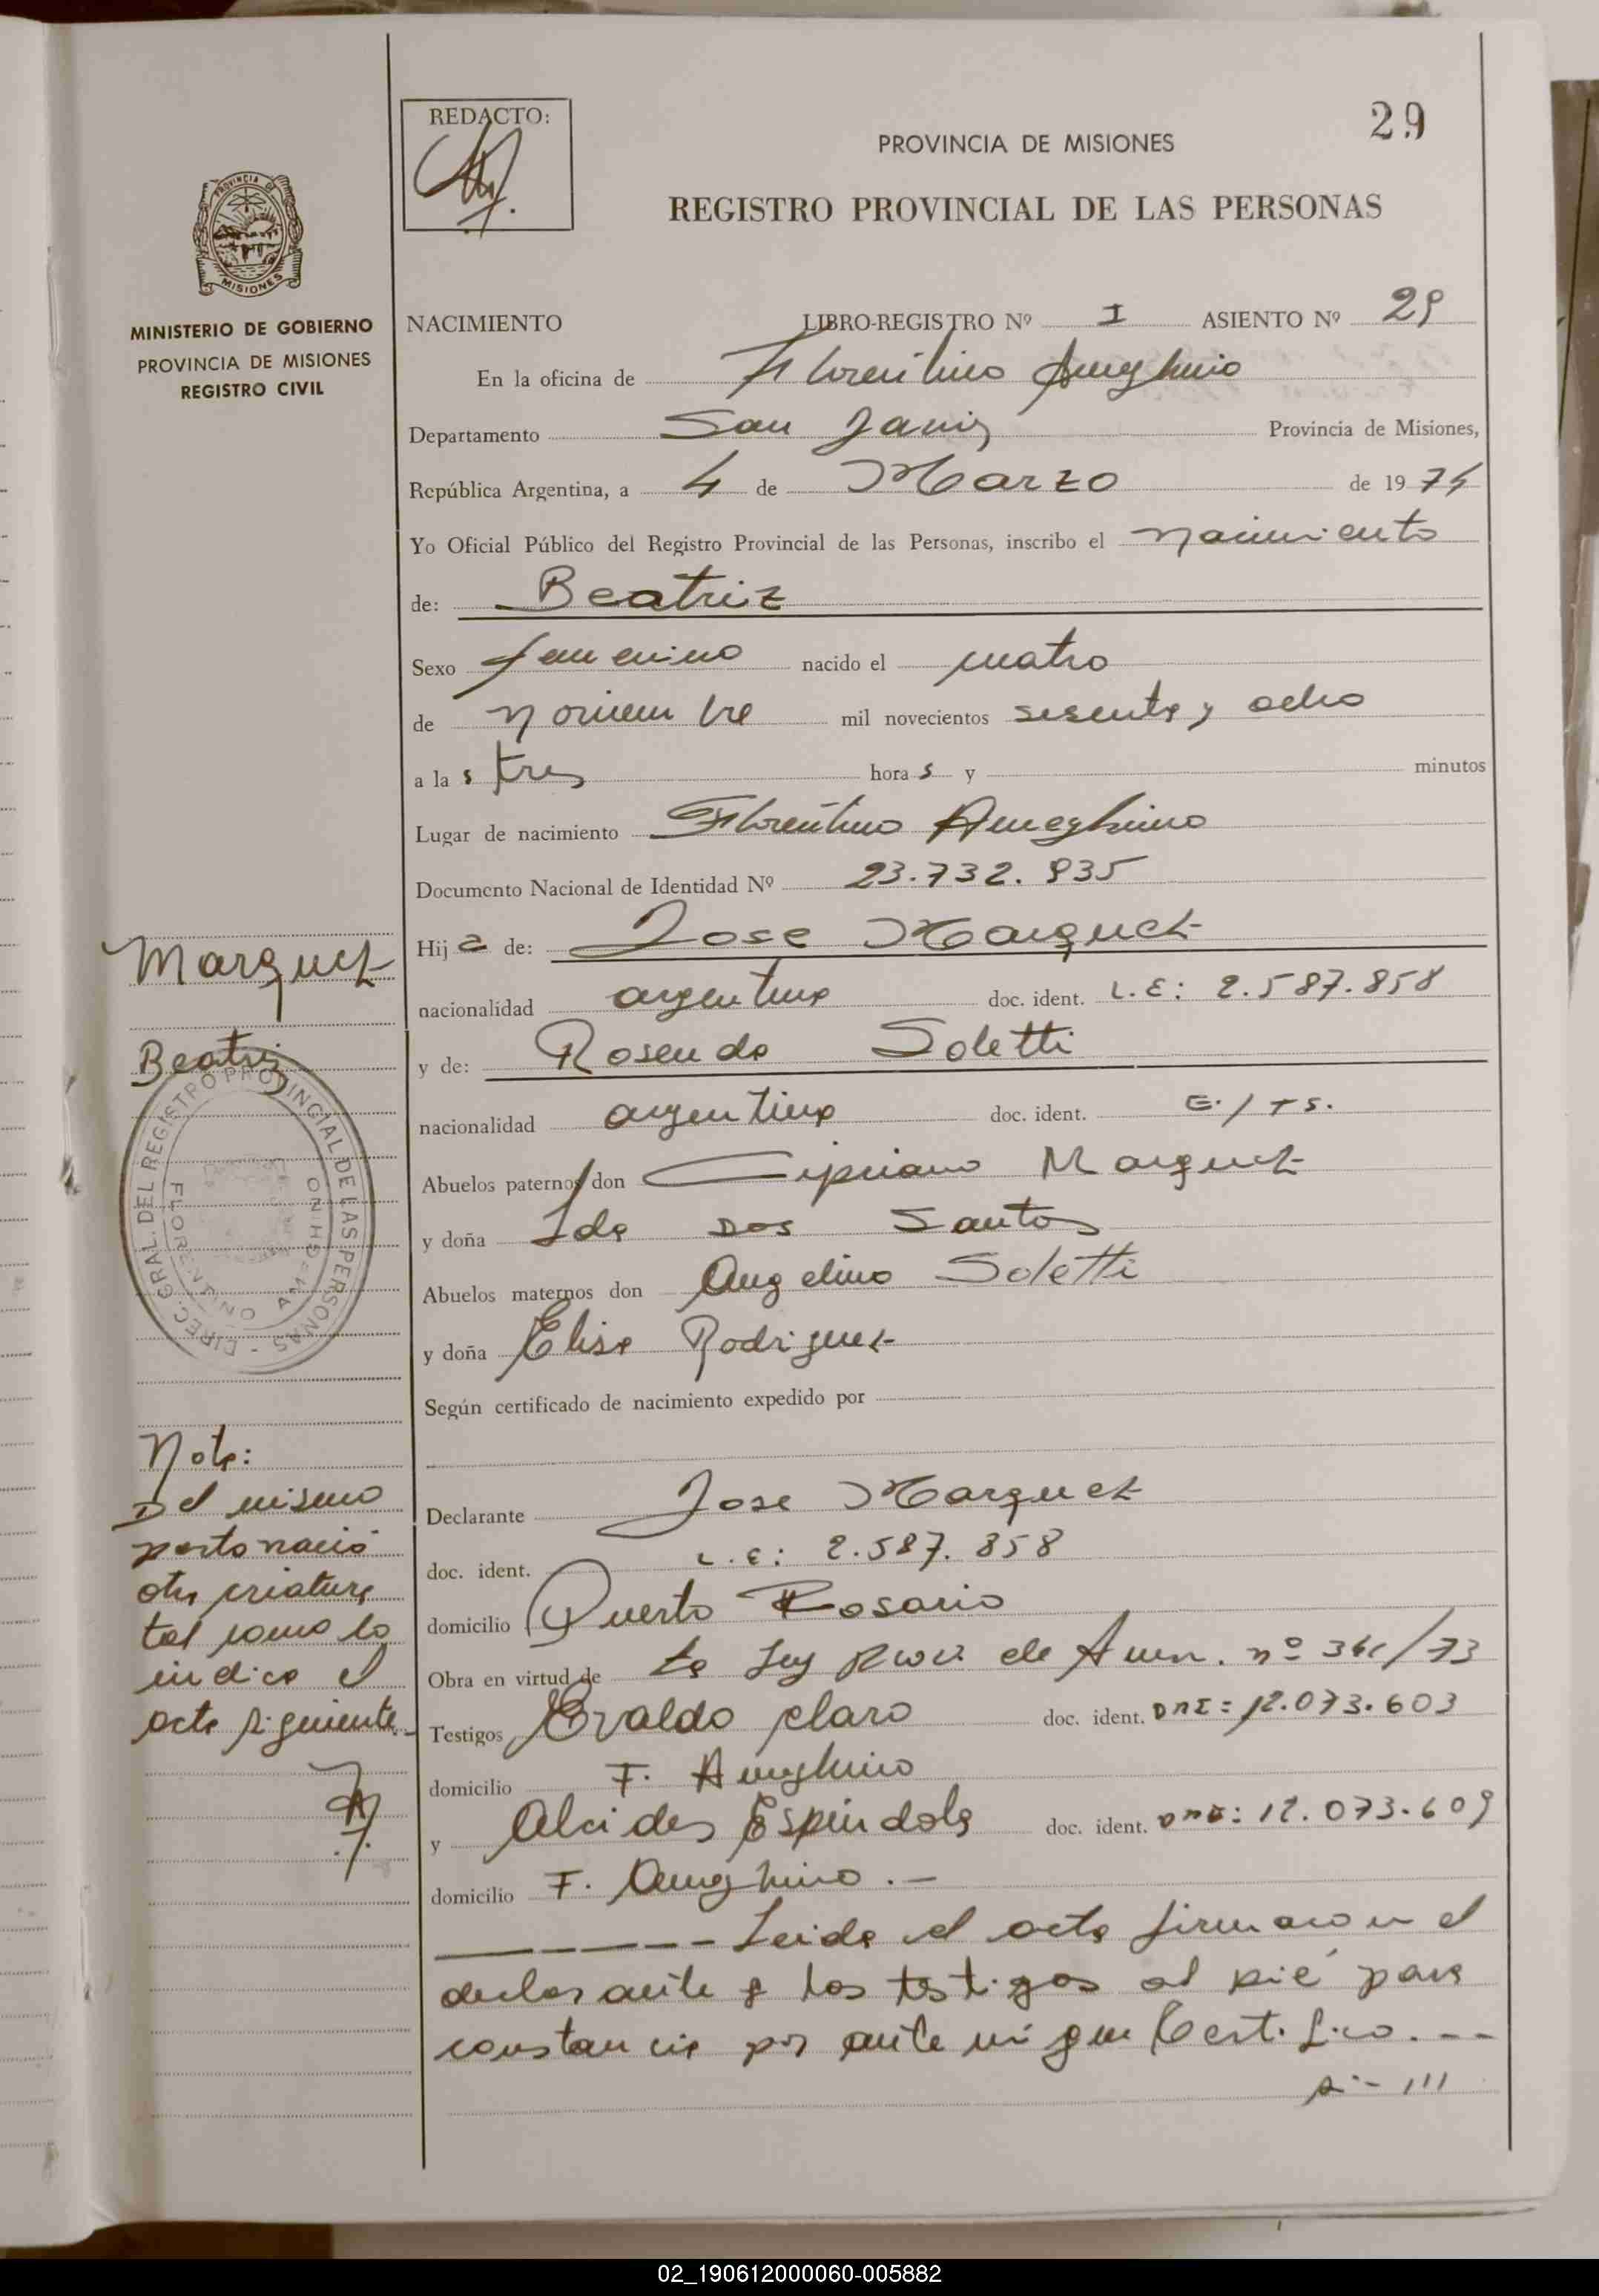 REDACTO:
29
PROVINCIA DE MISIONES
REGISTRO PROVINCIAL DE LAS PERSONAS
PROVINCIA DE
MISIONES
MINISTERIO DE GOBIERNO
PROVINCIA DE MISIONES
REGISTRO CIVIL
NACIMIENTO LIBRO-REGISTRO Nº I ASIENTO Nº 29
En la oficina de Florentino Ameghino
Departamento San Javier Provincia de Misiones,
República Argentina, a 4 de Marzo de 1974
Yo Oficial Público del Registro Provincial de las Personas, inscribo el nacimiento
de: Beatriz
Sexo femenino nacido el cuatro
de noviembre mil novecientos sesenta y ocho
a la s tres hora s y minutos
Lugar de nacimiento Florentino Ameghino
Documento Nacional de Identidad Nº 23.732.935
Hij a de: Jose Marquez
nacionalidad argentina doc. ident. L.E: 2.587.858
y de: Rosenda Soletti
nacionalidad argentina doc. ident.
Abuelos paternos don Cipriano Marquez
y doña Ida Dos Santos
Abuelos maternos don Angelino Soletti
y doña Elisa Rodriguez
Según certificado de nacimiento expedido por
Declarante Jose Marquez
doc. ident. L.E: 2.587.858
domicilio Puerto Rosario
Obra en virtud de la Ley Prov. de Amn. nº 341/73
Testigos Evaldo Claro doc. ident. DNI: 12.073.603
domicilio F. Ameghino
y Alcides Espindola doc. ident. DNI: 12.073.609
domicilio F. Ameghino.—
Leida el acta firmaron el
declarante y los testigos al pié para
constancia por ante mi que Certifico.---
///
Marquez
Beatriz
DIREC. GRAL. DEL REGISTRO PROVINCIAL DE LAS PERSONAS -
FLORENTINO AMEGHINO
Nota:
Del mismo
parto nació
otra criatura
tal como lo
indica el
acta siguiente.-
02_190612000060-005882